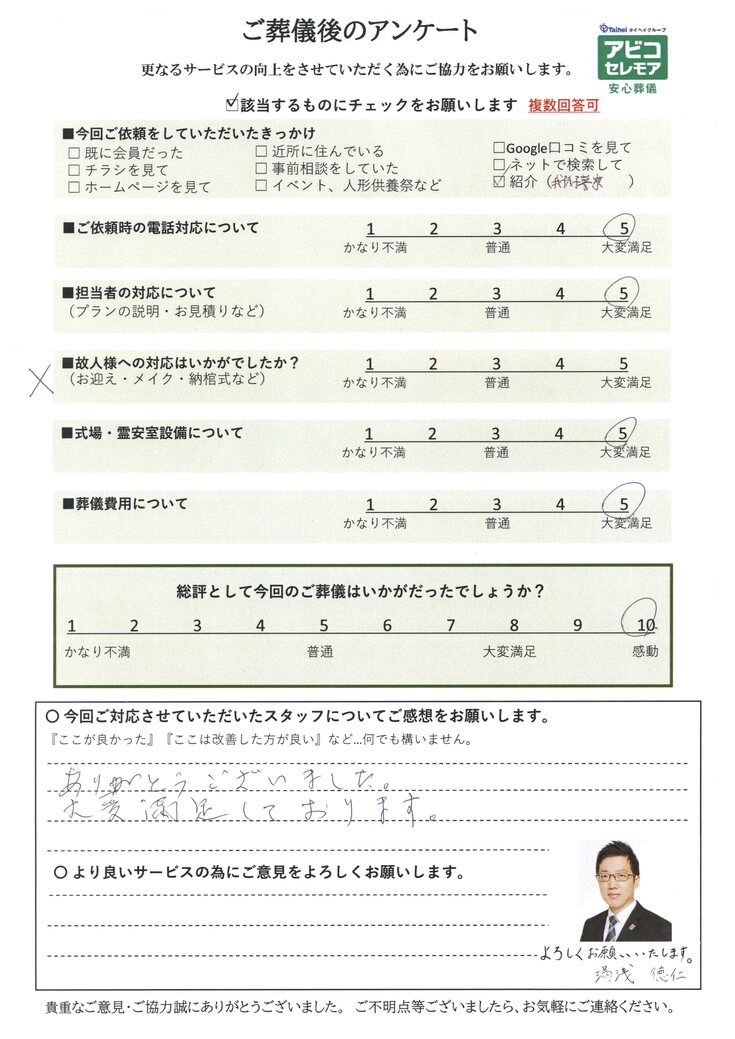 ご葬儀後のアンケート
Taihei タイヘイグループ
アビコ
セレモア
安心葬儀
更なるサービスの向上をさせていただく為にご協力をお願いします。
☑該当するものにチェックをお願いします 複数回答可
■今回ご依頼をしていただいたきっかけ
□ 既に会員だった □ 近所に住んでいる □Google口コミを見て
□ チラシを見て □ 事前相談をしていた □ネットで検索して
□ ホームページを見て □ イベント、人形供養祭など ☑紹介（ ）
■ご依頼時の電話対応について 1 2 3 4 5
かなり不満 普通 大変満足
■担当者の対応について 1 2 3 4 5
（プランの説明・お見積りなど） かなり不満 普通 大変満足
■故人様への対応はいかがでしたか？ 1 2 3 4 5
（お迎え・メイク・納棺式など） かなり不満 普通 大変満足
■式場・霊安室設備について 1 2 3 4 5
かなり不満 普通 大変満足
■葬儀費用について 1 2 3 4 5
かなり不満 普通 大変満足
総評として今回のご葬儀はいかがだったでしょうか？
1 2 3 4 5 6 7 8 9 10
かなり不満 普通 大変満足 感動
〇 今回ご対応させていただいたスタッフについてご感想をお願いします。
『ここが良かった』『ここは改善した方が良い』など…何でも構いません。
ありがとうございました。
大変満足しております。
〇 より良いサービスの為にご意見をよろしくお願いします。
よろしくお願いいたします。
湯浅 徳仁
貴重なご意見・ご協力誠にありがとうございました。 ご不明点等ございましたら、お気軽にご連絡ください。